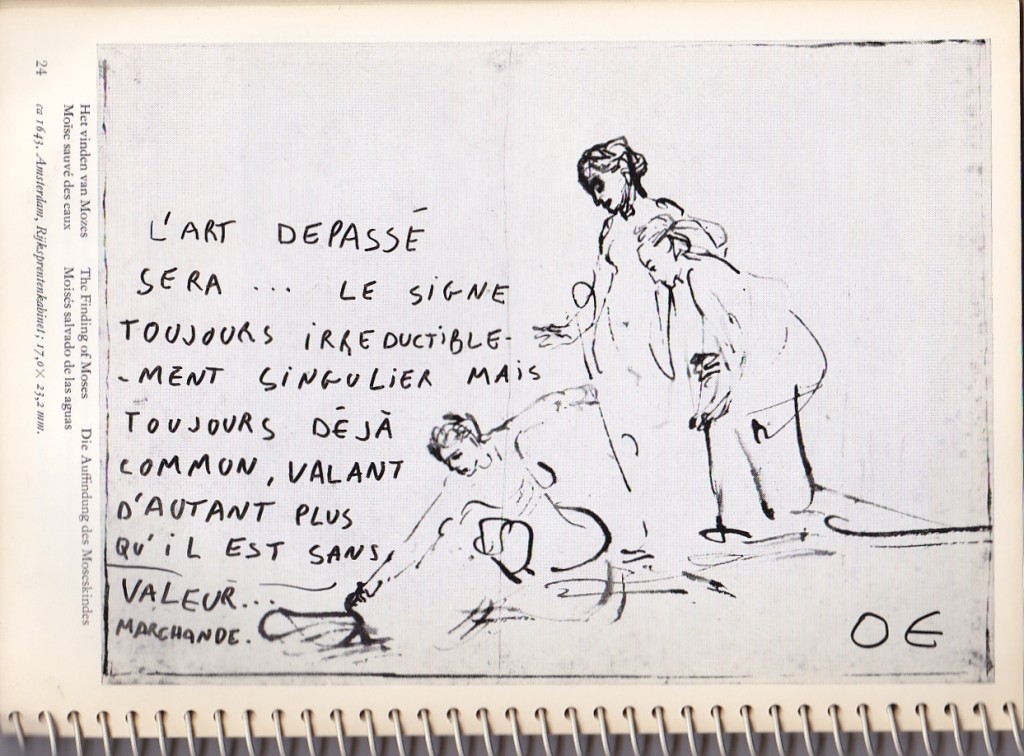 L'ART DEPASSÉ
SERA ... LE SIGNE
TOUJOURS IRREDUCTIBLE-
-MENT SINGULIER MAIS
TOUJOURS DÉJÀ
COMMUN, VALANT
D'AUTANT PLUS
QU'IL EST SANS
VALEUR...
MARCHANDE.
OE
24
Het vinden van Mozes The Finding of Moses Die Auffindung des Moseskindes
Moïse sauvé des eaux Moisés salvado de las aguas
ca 1643. Amsterdam, Rijksprentenkabinet; 17,0 × 23,2 mm.